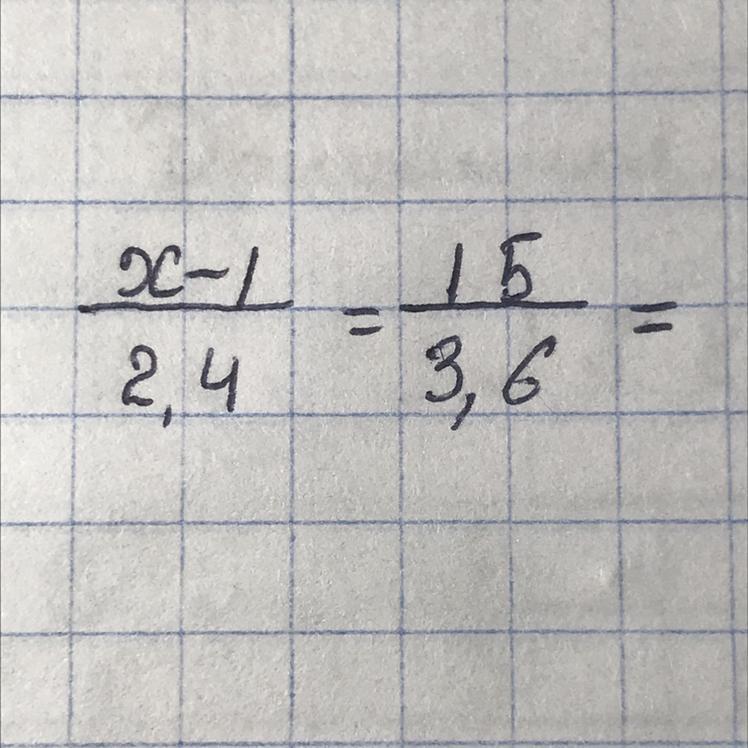 x-1 / 2,4 = 15 / 3,6 =